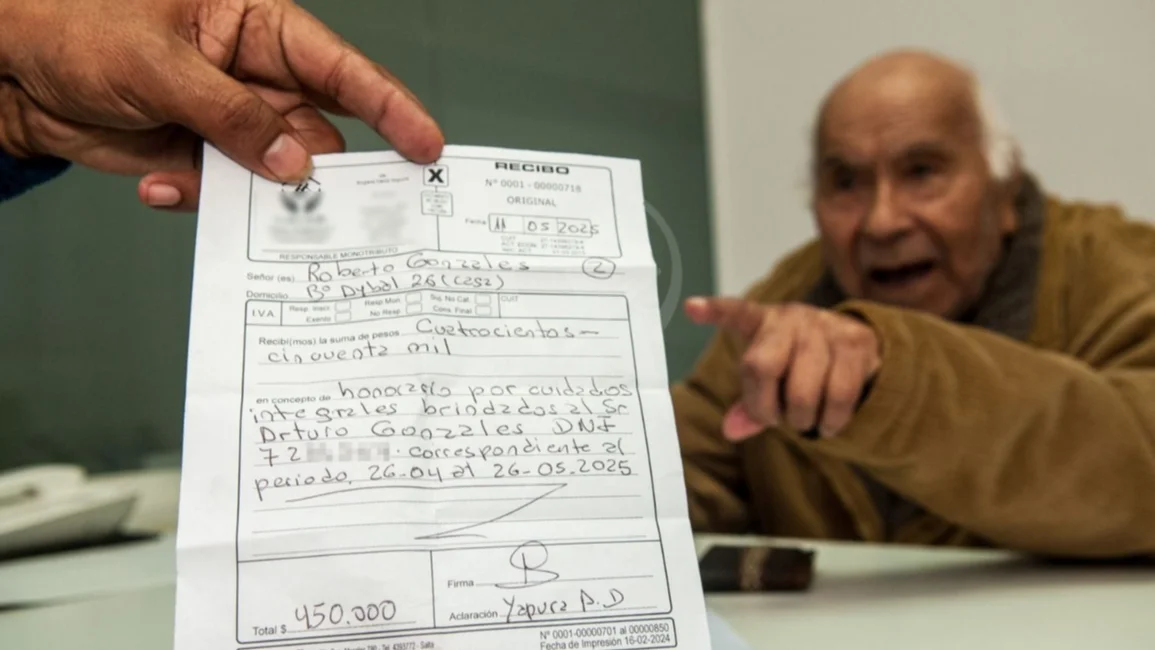 RECIBO
X
Nº 0001 - 00000718
ORIGINAL
Fecha 11 05 2025
RESPONSABLE MONOTRIBUTO
Señor (es) Roberto Gonzales 2
Domicilio Bº Dybal 26 (casa)
IVA Resp. Inscr. Resp. Mon. Suj. No Cat. CUIT
Exento No Resp. Cons. Final
Recibí(mos) la suma de pesos Cuatrocientos-
cincuenta mil
en concepto de honorario por cuidados
integrales brindados al Sr
Arturo Gonzales DNI
72 . correspondiente al
periodo. 26-04 al 26-05.2025
Firma
Total $ 450.000
Aclaración Yapura A.D
Nº 0001-00000701 al 00000850
Fecha de Impresión 16-02-2024